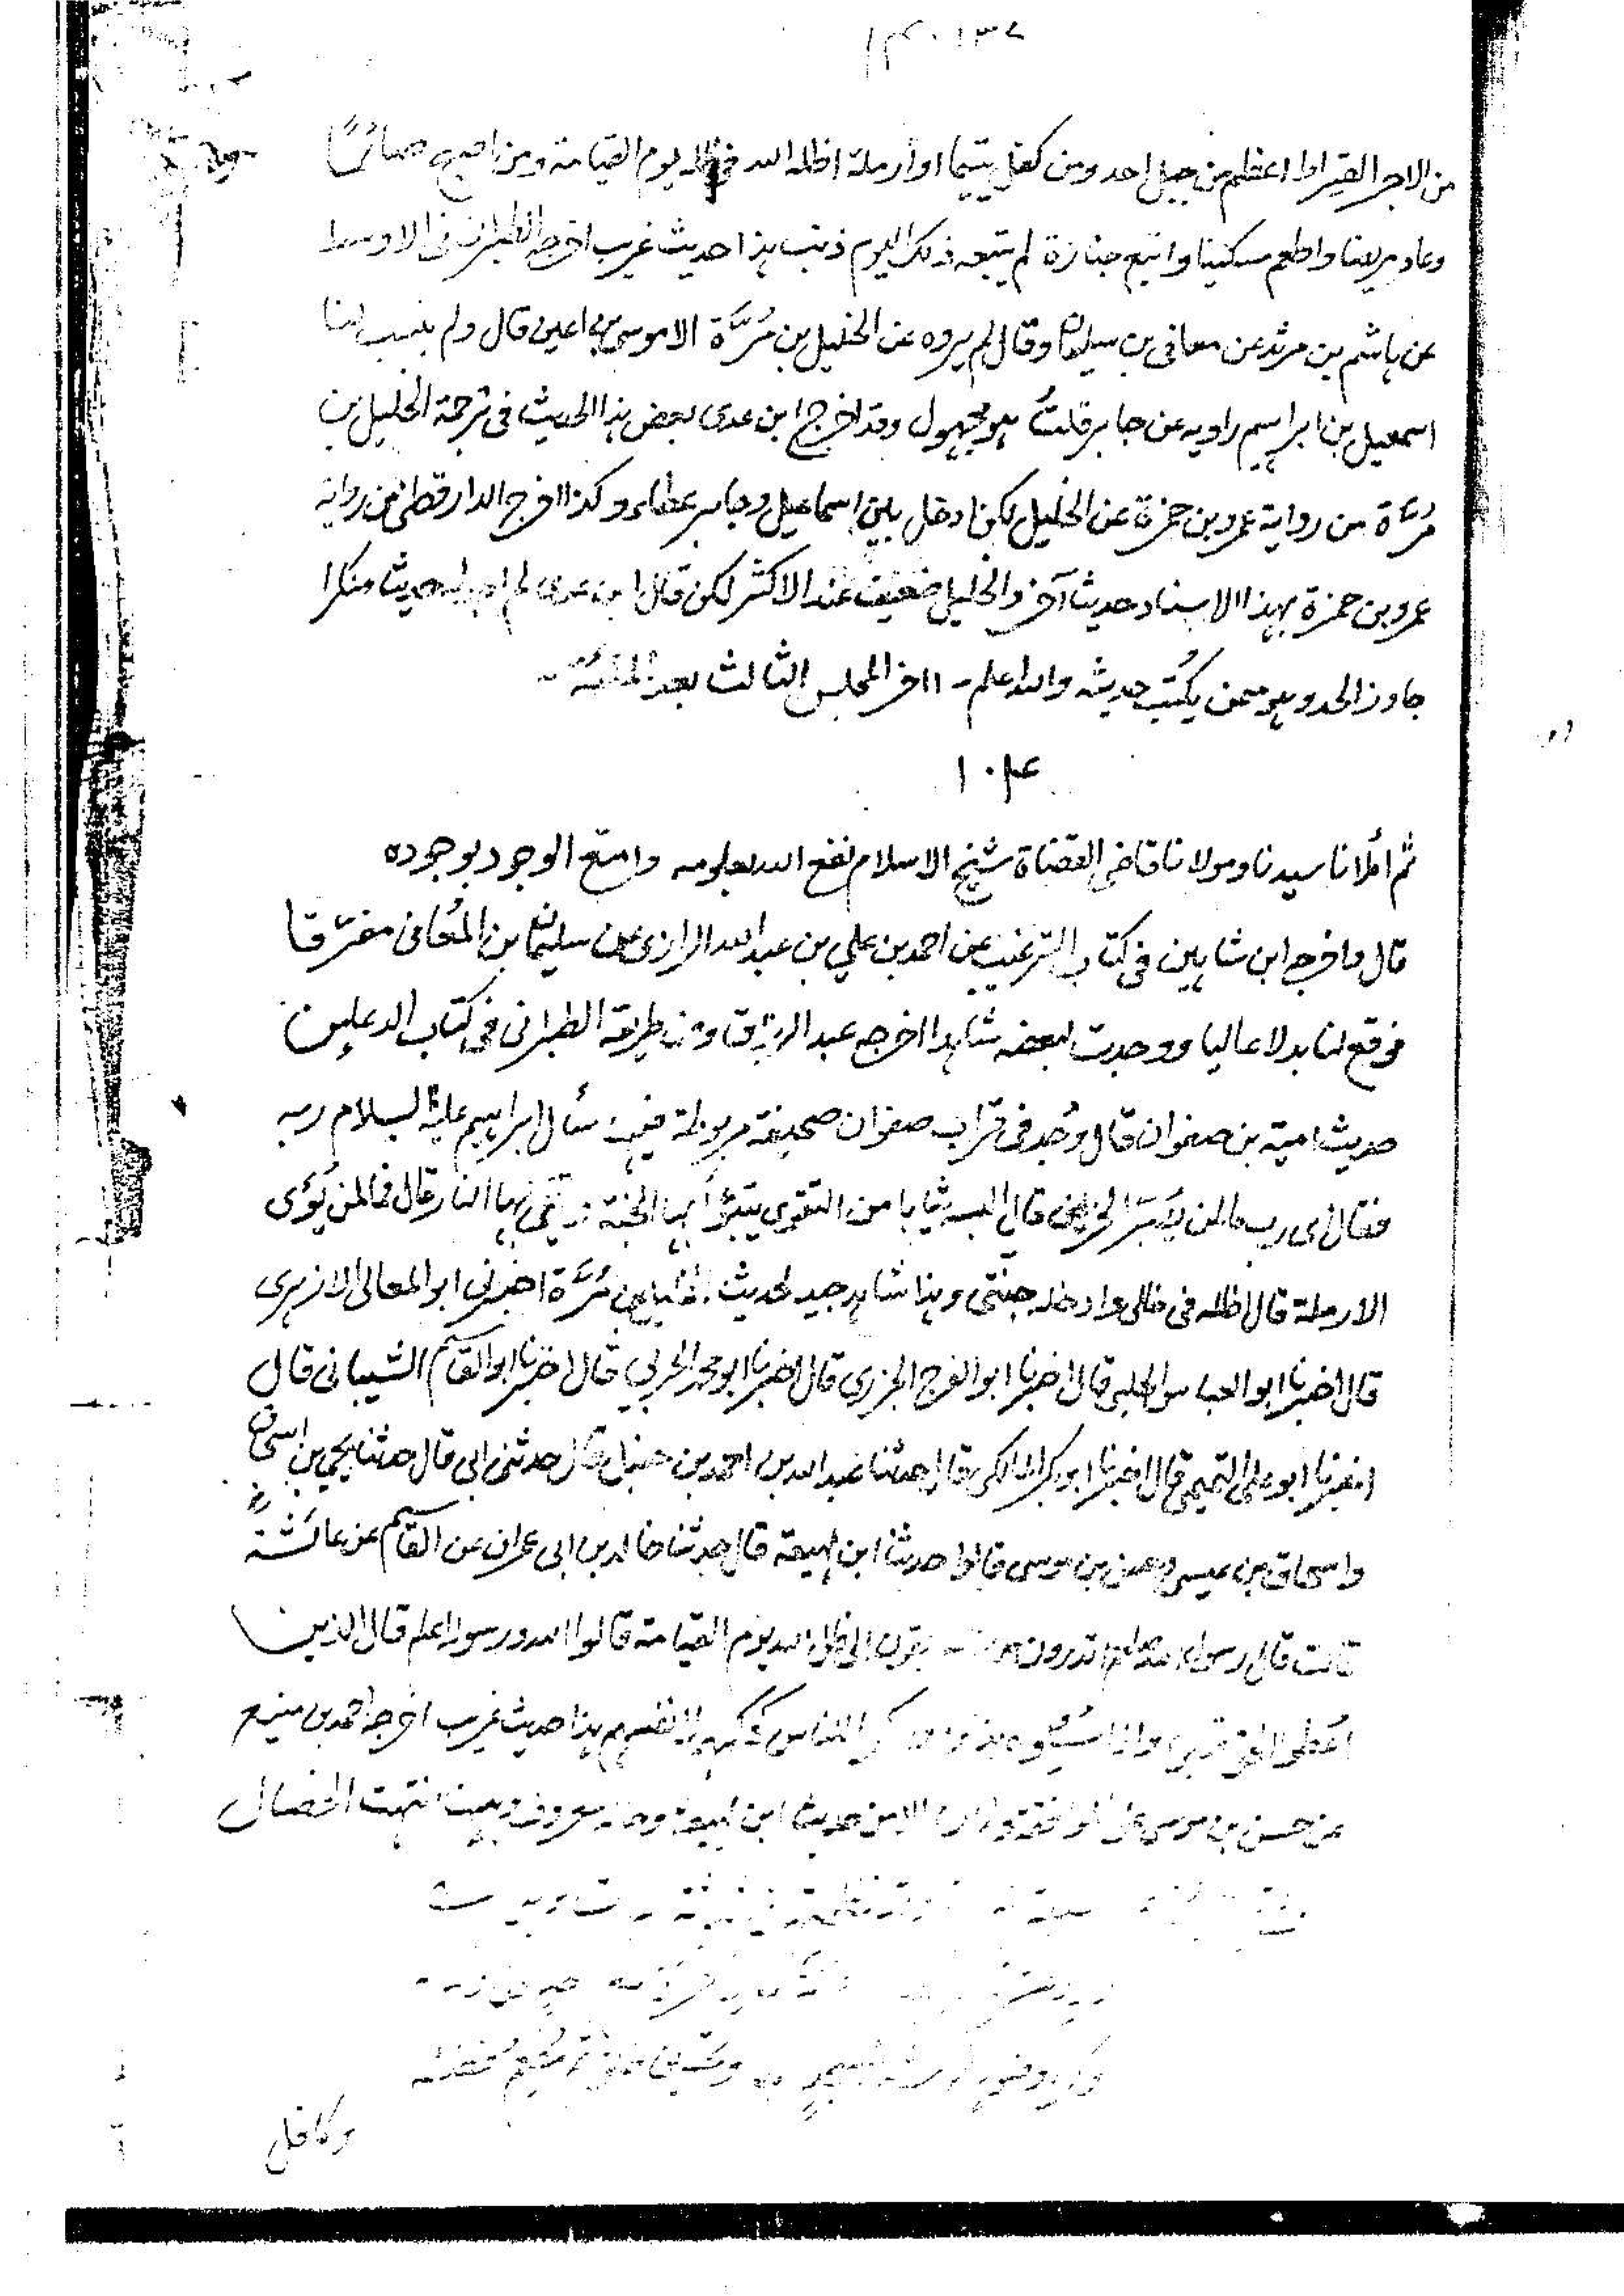 من الاجر القيراط اعظم من جبل احد ومن كفل يتيما او ارملة اظله الله في ظله يوم القيامة ومن اصبح صائمًا
وعاد مريضا واطعم مسكينا واتبع جنازة لم يتبعه ذلك اليوم ذنب هذا حديث غريب اخرجه الطبراني في الاوسط
عن هاشم بن مرثد عن معافى بن سليمان وقال لم يروه عن الخليل بن مُرَّة الا موسى بن اعين قال ولم ينسب لنا
اسمعيل بن ابراهيم راويه عن جابر قلتُ هو مجهول وقد اخرج ابن عدى بعض هذا الحديث فى ترجمة الخليل بن
مُرَّة من رواية عمرو بن حمزة عن الخليل لكن ادخل بين اسماعيل وجابر عطاء وكذا اخرج الدارقطني من رواية
عمرو بن حمزة بهذا الاسناد حديثا آخر والخليل ضعيف عند الاكثر لكن قال ابن عدى لم اجد له حديثا منكرا
جاوز الحد وهو ممن يكتب حديثه والله اعلم - اخر المجلس الثالث بعد المائة
١٠٤
ثم املانا سيدنا ومولانا قاضى القضاة شيخ الاسلام نفع الله بعلومه وامتع الوجود بوجوده
قال واخرجه ابن شاهين فى كتاب الترغيب عن احمد بن علي بن عبد الله الرازى عن سليمان بن المُعافى مفرّقا
فوقع لنا بدلا عاليا ووجدت لبعضه شاهدا اخرجه عبد الرزاق ومن طريقه الطبرانى فى كتاب الدعا من
حديث امية بن صفوان قال وُجد فى قراب صفوان صحيفة مربوطة فيها سأل ابراهيم عليه السلام ربه
فقال اى رب ما لمن يُصَبِّر الحزين قال البسه ثيابا من التقوى يتبوّأ بها الجنة ويتقى بها النار قال فما لمن يُؤوى
الارملة قال اظله فى ظلى وادخله جنتى وهذا شاهد جيد لحديث الخليل بن مُرَّة اخبرنى ابو المعالى الازهرى
قال اخبرنا ابو العباس الحلبى قال اخبرنا ابو الفرج الجزرى قال اخبرنا ابو محمد الحربي قال اخبرنا ابو القاسم الشيبانى قال
اخبرنا ابو على التميمى قال اخبرنا ابو بكر المالكى قال حدثنا عبد الله بن احمد بن حنبل قال حدثنى ابى قال حدثنا يحيى بن اسحاق
واسحاق بن عيسى وحسن بن موسى قالوا حدثنا ابن لهيعة قال حدثنا خالد بن ابى عمران عن القاسم عن عائشة
قالت قال رسول الله صلعم اتدرون من السابقون الى ظل الله يوم القيامة قالوا الله ورسوله اعلم قال الذين
اذا اُعطوا الحق قبلوه واذا سُئلوه بذلوه وحكموا للناس كحكمهم لانفسهم هذا حديث غريب اخرجه احمد بن منيع
عن حسن بن موسى على الموافقة الا من حديث ابن لهيعة وحاله معروف وبهذا انتهت الخصال
وكافل